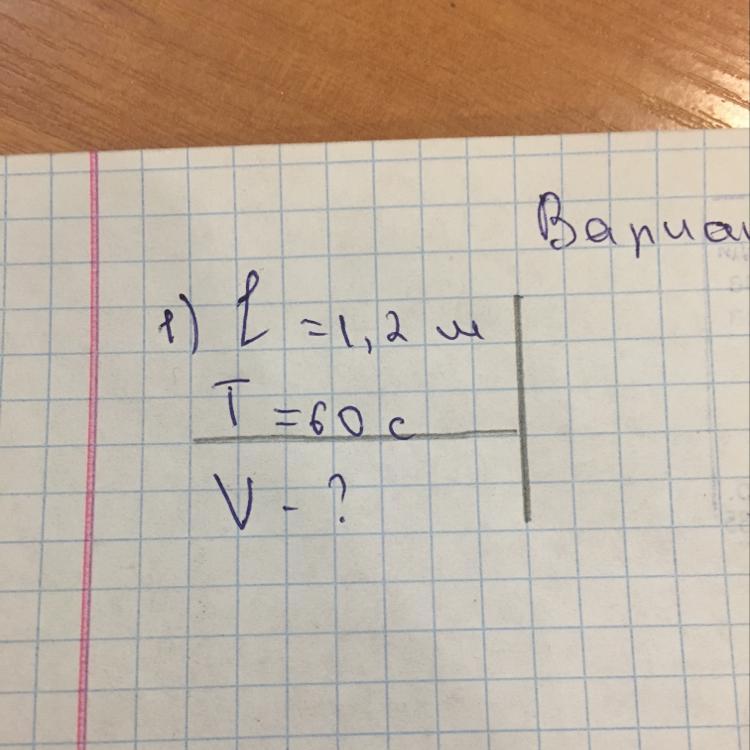 Вариан
1) L = 1,2 м
T = 60 с
V - ?